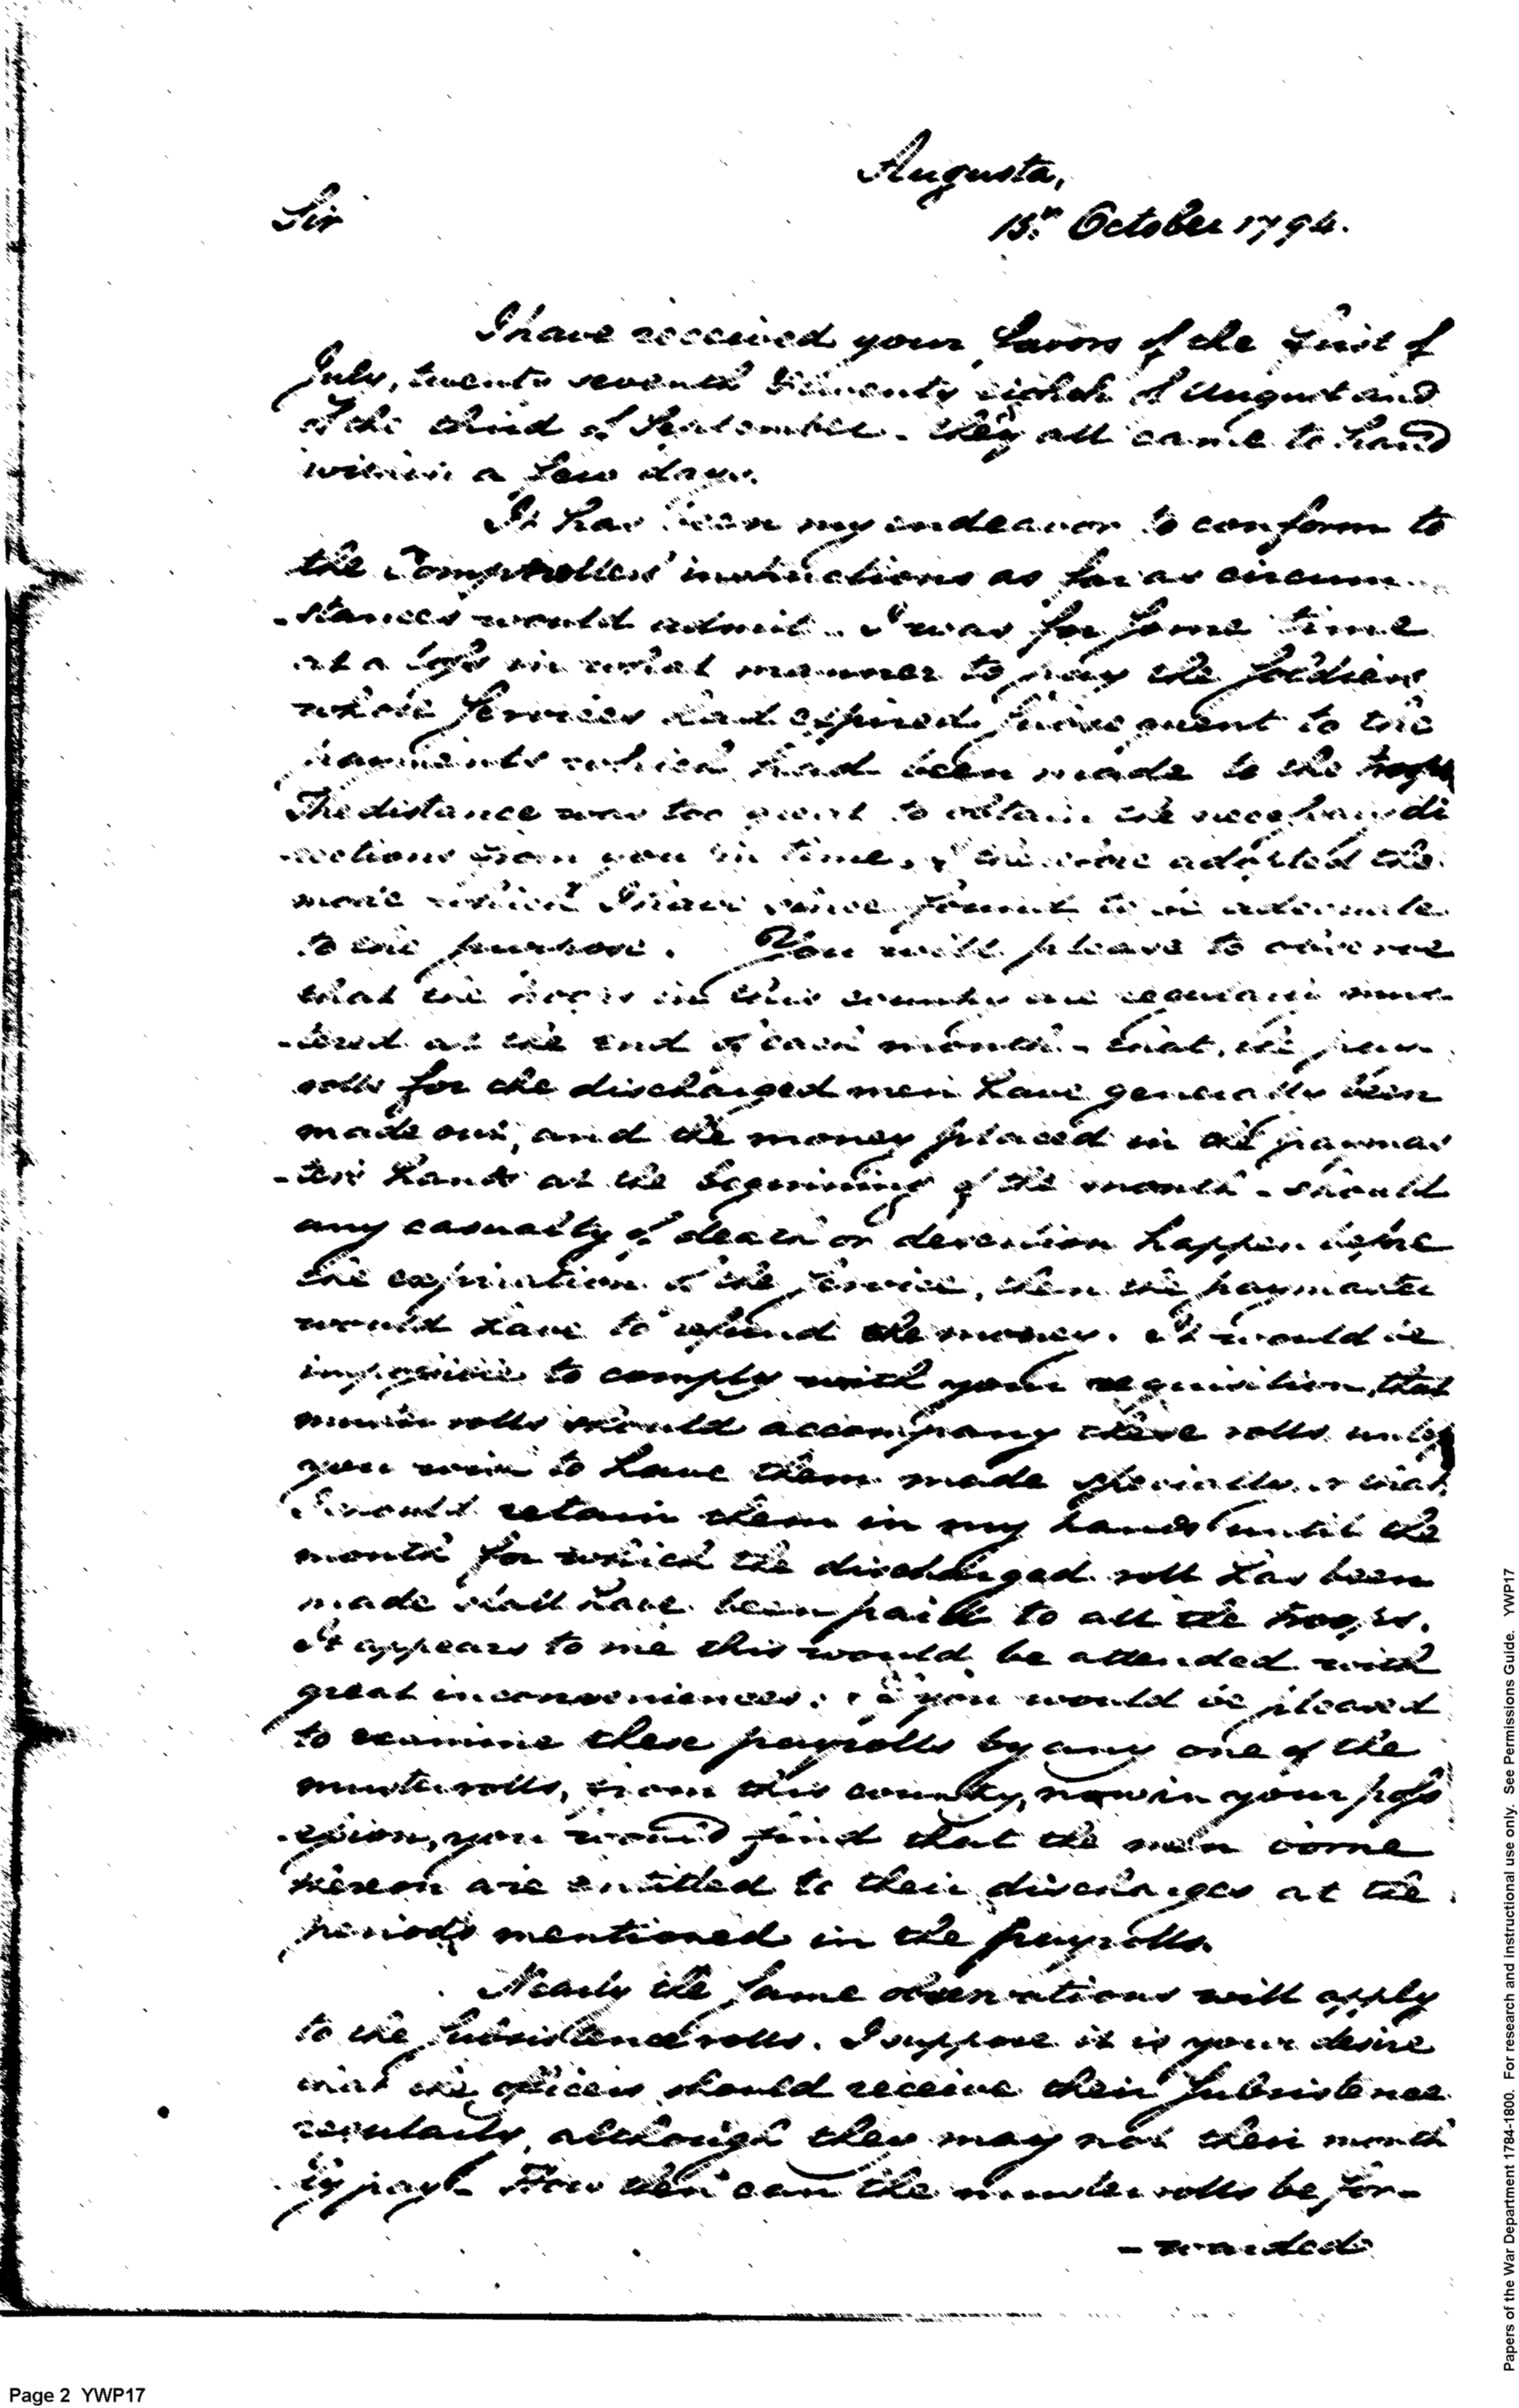 Augusta,
Sir
15th October 1794.
I have received your favors of the first of
July, twenty seventh & twenty eighth of August and
of the third of September. they all came to hand
within a few days.
It has been my endeavor to conform to
the Comptrollers' instructions as far as circum-
-stances would admit. I was for some time
at a loss in what manner to pay the soldiers
whose services had expired subsequent to the
payments which had been made to the troops
The distance was too great to obtain the necessary di
-rections from you in time, I therefore adopted the
mode which I have since found to be adequate
to the purpose. You will please to observe
that the troops in this country are regularly mus-
-tered at the end of each month - that, the pay
rolls for the discharged men have generally been
made out, and the money placed in the paymas
-ters hands at the beginning of the month - should
any casualty of death or desertion happen before
the expiration of the service, then the paymaster
would have to refund the money. It would be
impossible to comply with your requisition, that
muster rolls should accompany these rolls unless
you wish to have them made specially, or that
I should retain them in my hands until the
month for which the discharged roll has been
made shall have been paid to all the troops.
It appears to me this would be attended with
great inconveniences. If you would be pleased
to examine these payrolls by any one of the
muster rolls, from this country, now in your poss
-ession, you would find that the men borne
thereon are entitled to their discharges at the
periods mentioned in the payrolls.
Nearly the same observations will apply
to the subsistence rolls. I suppose it is your desire
that the officers should receive their subsistence
regularly, although they may not their month
ly pay. How then can the muster rolls be for-
- warded
Papers of the War Department 1784-1800. For research and instructional use only. See Permissions Guide. YWP17
Page 2 YWP17